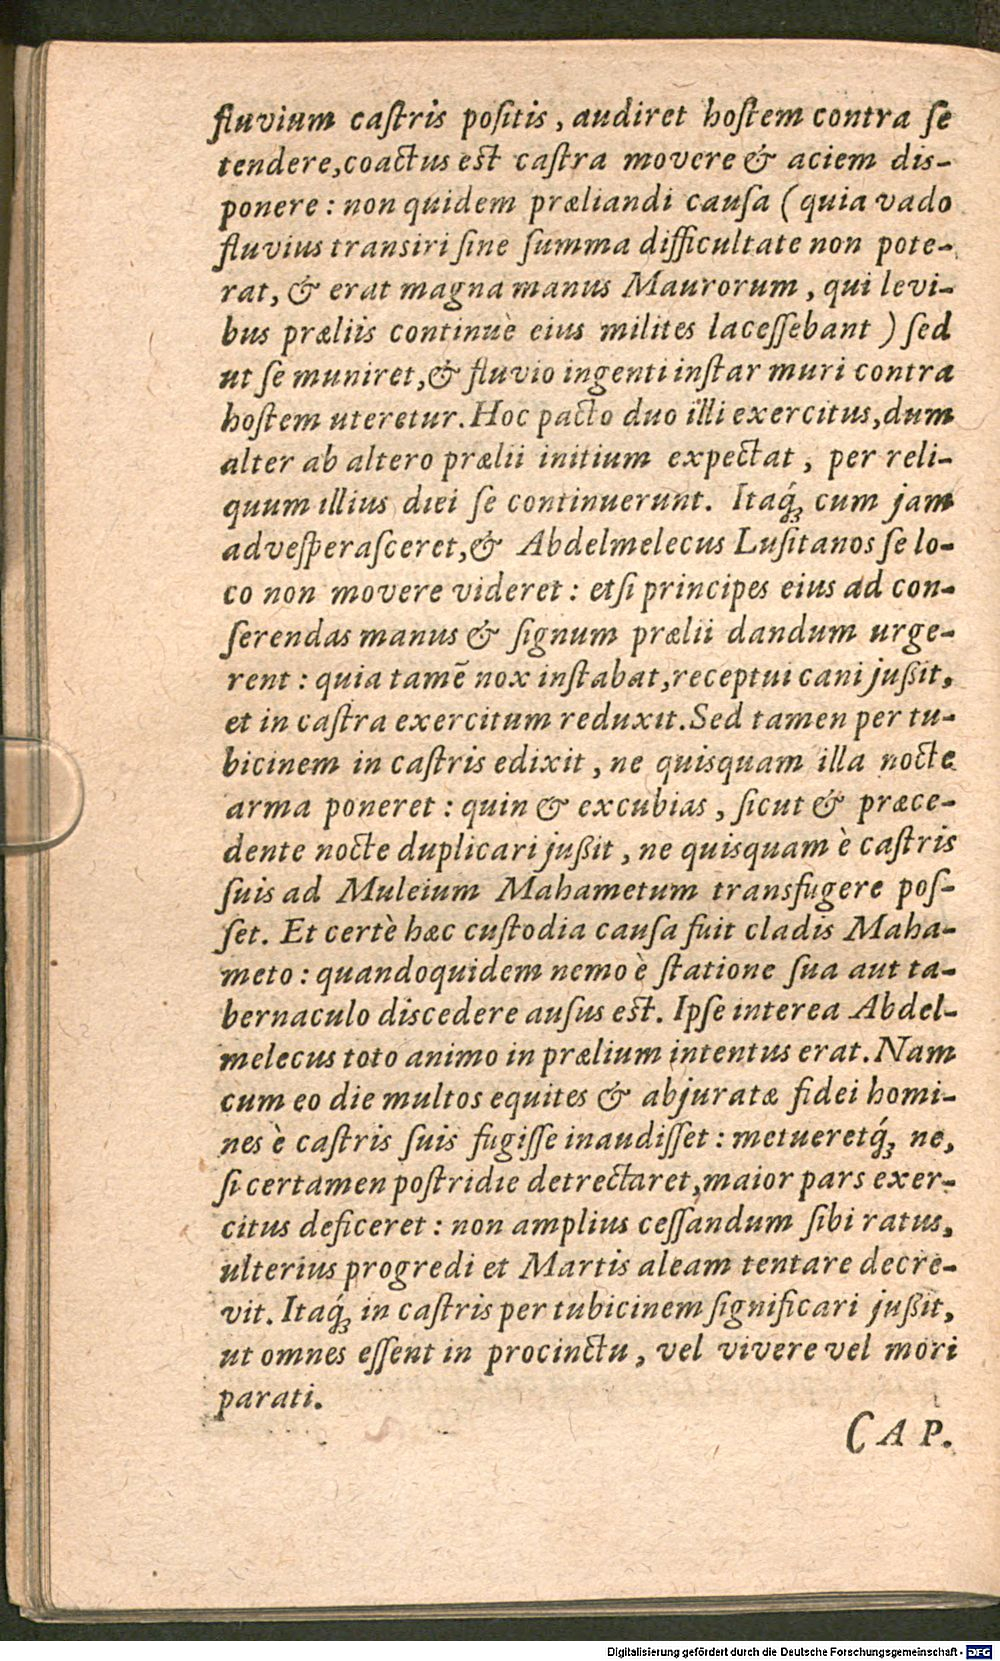 fluvium caſtris poſitis, audiret hoſtem contra ſe
tendere, coactus eſt caſtra movere & aciem dis-
ponere: non quidem præliandi cauſa (quia vado
fluvius transiri ſine ſumma difficultate non pote-
rat, & erat magna manus Maurorum, qui levi-
bus præliis continuè eius milites laceſſebant) ſed
ut ſe muniret, & fluvio ingenti inſtar muri contra
hoſtem uteretur. Hoc pacto duo illi exercitus, dum
alter ab altero prælii initium expectat, per reli-
quum illius diei ſe continuerunt. Itaq́ꝫ cum jam
adveſperaſceret, & Abdelmelecus Luſitanos ſe lo-
co non movere videret: etſi principes eius ad con-
ſerendas manus & ſignum prælii dandum urge-
rent: quia tamē nox inſtabat, receptui cani jußit,
et in caſtra exercitum reduxit. Sed tamen per tu-
bicinem in caſtris edixit, ne quisquam illa nocte
arma poneret: quin & excubias, ſicut & præce-
dente nocte duplicari jußit, ne quisquam è caſtris
ſuis ad Muleium Mahametum transfugere poſ-
ſet. Et certè hæc cuſtodia cauſa fuit cladis Maha-
meto: quandoquidem nemo è ſtatione ſua aut ta-
bernaculo discedere auſus eſt. Ipſe interea Abdel-
melecus toto animo in prælium intentus erat. Nam
cum eo die multos equites & abjuratæ fidei homi-
nes è caſtris ſuis fugiſſe inaudiſſet: metueretq́ꝫ ne,
ſi certamen poſtridie detrectaret, maior pars exer-
citus deficeret: non amplius ceſſandum ſibi ratus,
ulterius progredi et Martis aleam tentare decre-
vit. Itaq́ꝫ in caſtris per tubicinem ſignificari jußit,
ut omnes eſſent in procinctu, vel vivere vel mori
parati.
CAP.
Digitalisierung gefördert durch die Deutsche Forschungsgemeinschaft - DFG